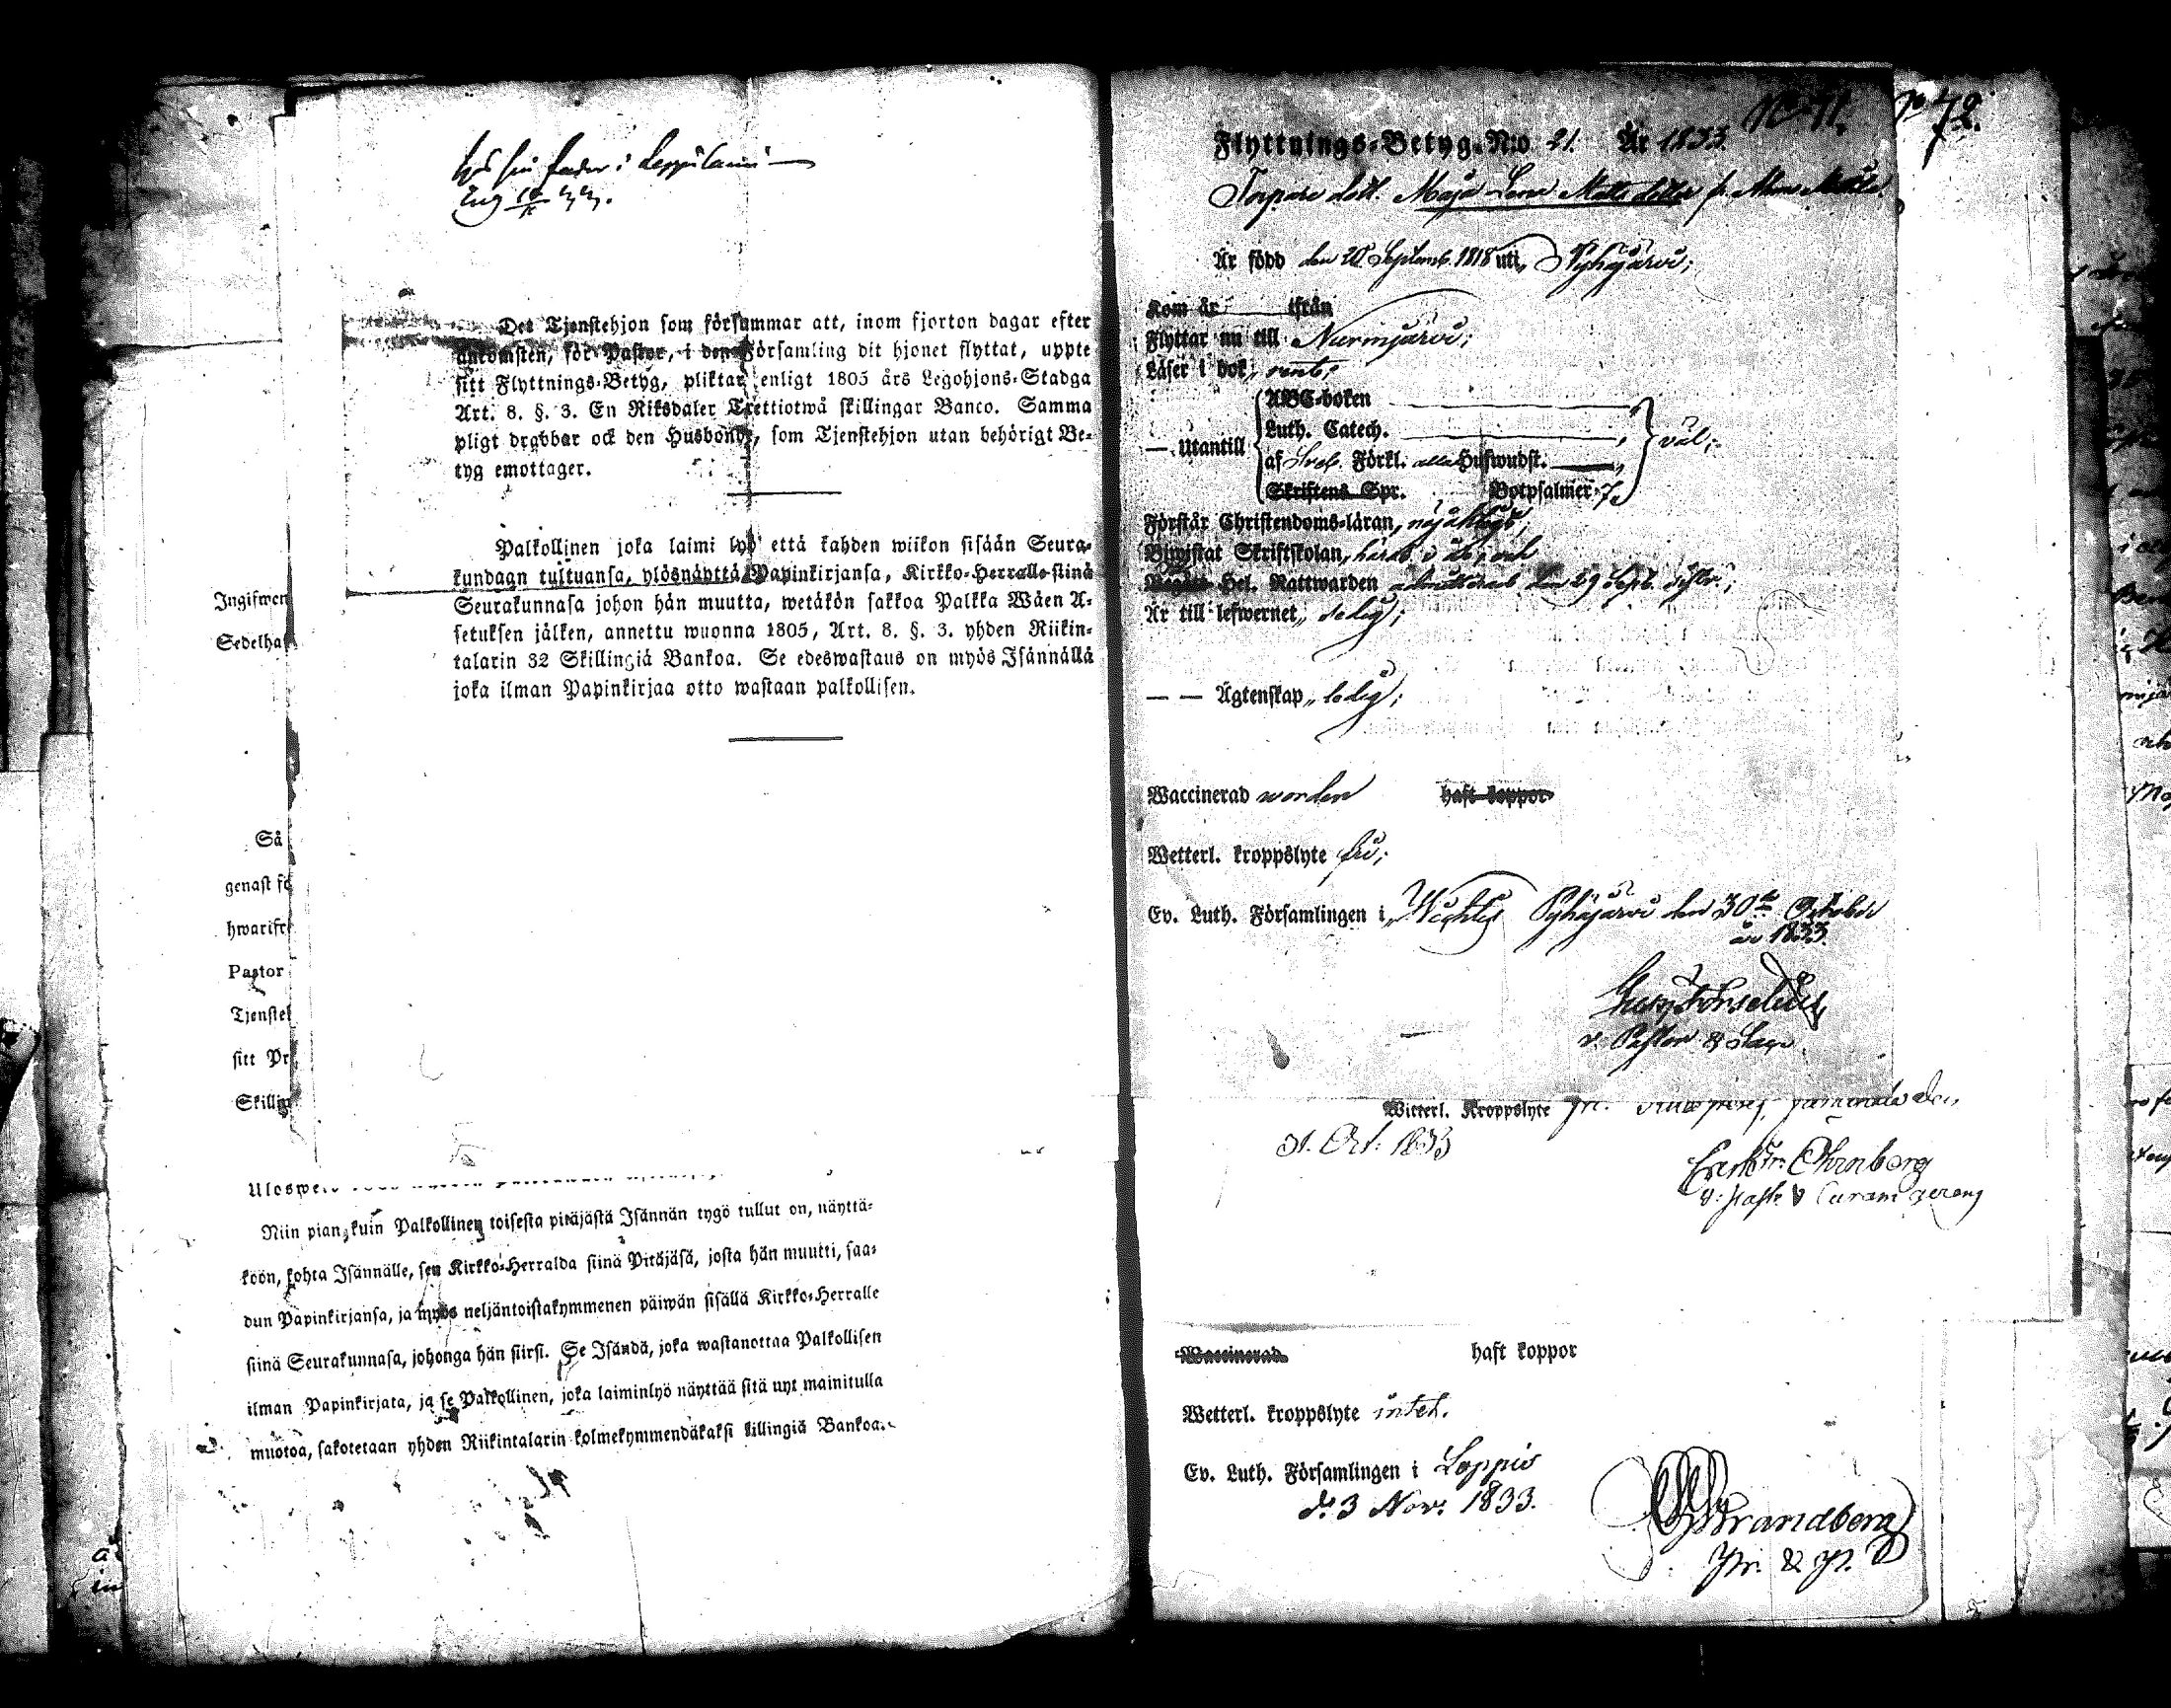 hos sin fader i Leppilammi —
Det Tjenstehjon som försummar att, inom fjorton dagar efter
ankomsten, för Pastor, i den Församling dit hjonet flyttat, uppte
sitt Flyttnings-Betyg, pliktar enligt 1805 års Legohjons-Stadga
Art. 8. §. 3. En Riksdaler Trettiotwå skillingar Banco. Samma
pligt drabbar ock den Husbonde, som Tjenstehjon utan behörigt Be-
tyg emottager.
Palkollinen joka laimi lyö että kahden wiikon sisään Seura-
kundaan tultuansa, ylösnäyttä Papinkirjansa, Kirkko-Herralle siinä
Seurakunnasa johon hän muutta, wetäkön sakkoa Palkka Wäen A-
setuksen jälken, annettu wuonna 1805, Art. 8. §. 3. yhden Riikin-
talarin 32 Skillingiä Bankoa. Se edeswastaus on myös Isännällä
joka ilman Papinkirjaa otto wastaan palkollisen.
Ingifwen
Sedelha
Så
genast fö
hwarifr
Pastor
Tjenstel
sitt Pr
Skillin
Niin pian, kuin Palkollinen toisesta pitäjästä Isännän tygö tullut on, näyttä-
köön, kohta Isännälle, sen Kirkko-Herralda siinä Pitäjäsä, josta hän muutti, saa-
dun Papinkirjansa, ja myös neljäntoistakymmenen päiwän sisällä Kirkko-Herralle
siinä Seurakunnasa, johonga hän siirsi. Se Isändä, joka wastanottaa Palkollisen
ilman Papinkirjata, ja se Palkollinen, joka laiminlyö näyttää sitä nyt mainitulla
muotoa, sakotetaan yhden Riikintalarin kolmekymmendäkaksi killingiä Bankoa.
No 71. No 72.
Flyttnings-Betyg. N:o 21. År 1833.
Torpare dott. Maja Lena Matts dotter fr.
Är född den 20 Septemb. 1818 uti Pyhäjärvi;
Kom år ifrån
Flyttar nu till Nurmijärvi;
Läser i bok, rent;
ABC-boken
Luth. Catech.
— Utantill af Sveb. Förkl. alla Hufwudst. väl;
Skriftens Spr. Botpsalmer 7.
Förstår Christendoms-läran, nöjaktigt;
Biwistat Skriftskolan,
Hel. Nattwarden admitterad den 29 Sept.
Är till lefwernet, sedig;
— — Ägtenskap, ledig;
Waccinerad worden haft koppor
Wetterl. kroppslyte fri;
Ev. Luth. Församlingen i Wichtis Pyhäjärvi den 30de October
år 1833.
v. Pastor & Sacp.
Witterl. Kroppslyte
31. Oct: 1833
Carl Fr: Öhrnberg
v: Past: & Curam gerens
Waccinerad haft koppor
Wetterl. kroppslyte intet.
Ev. Luth. Församlingen i Loppis
d. 3 Nov: 1833.
Strandberg
Pr. & P.